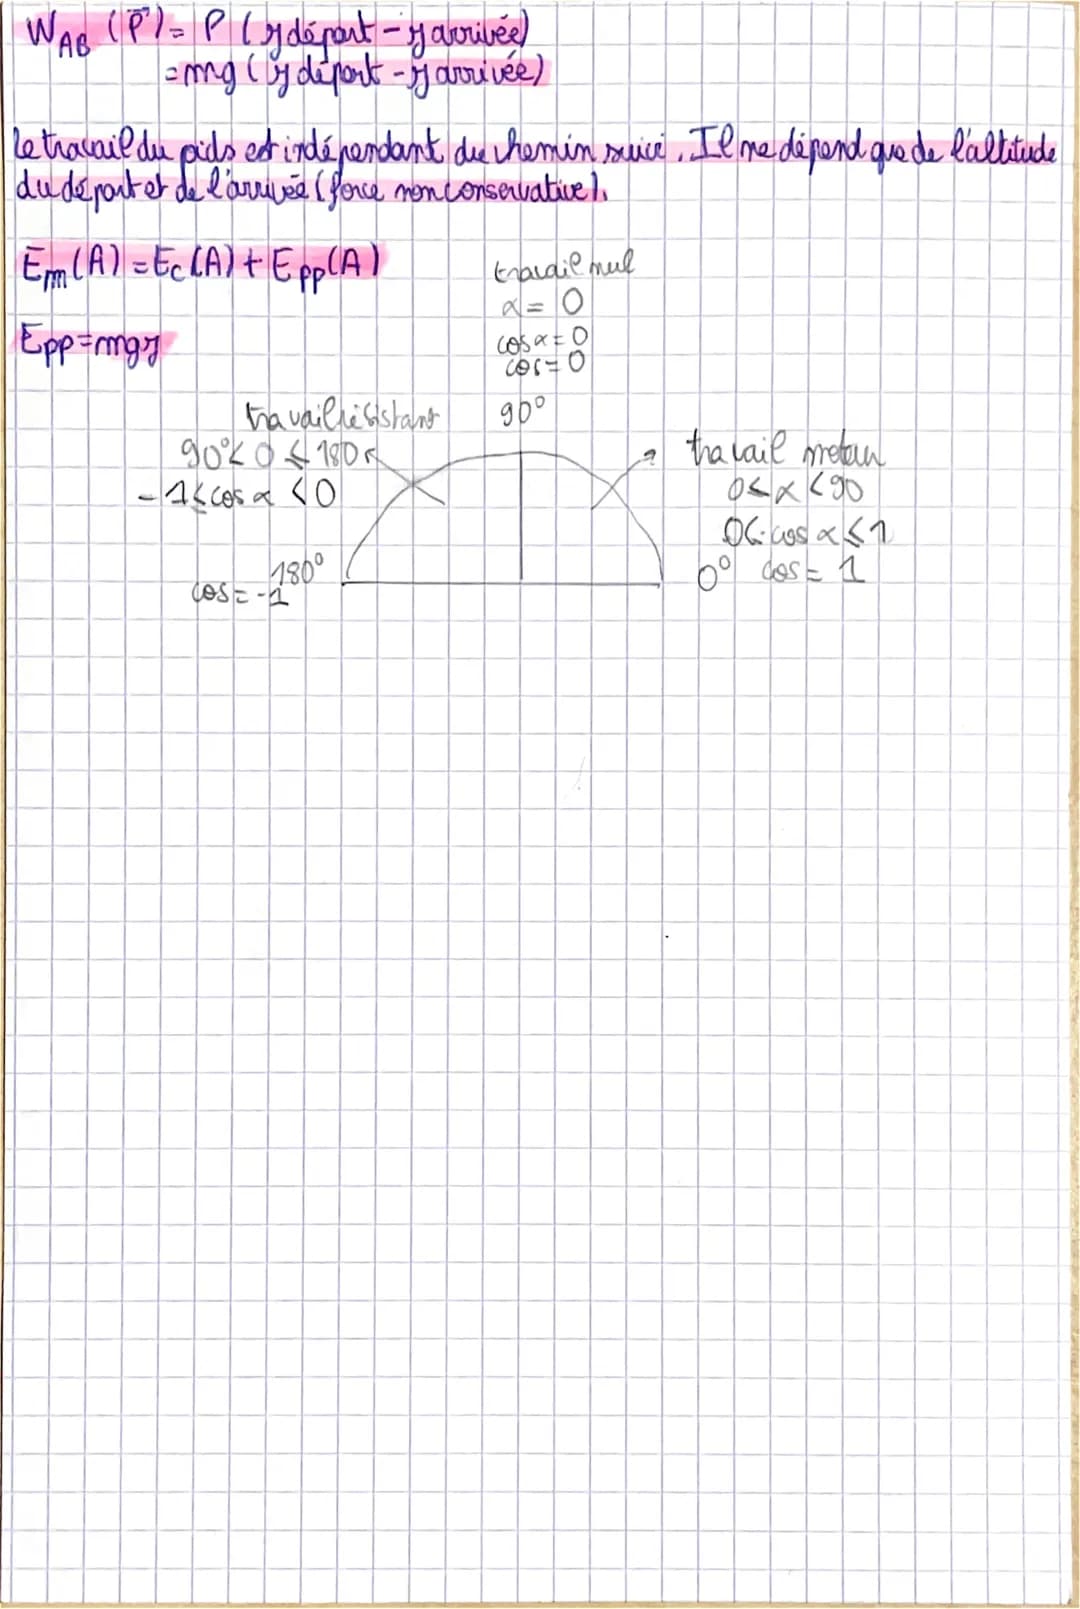 W_AB (P⃗) = P (y départ - y arrivée)
= mg (y départ - y arrivée)
le travail du pids est indépendant du chemin suivi. Il ne dépend que de l'altitude
du départ et de l'arrivée (force non conservative).
Em(A) = Ec(A) + Epp(A)
Epp = mgy
travail nul
α = 0
cos α = 0
cos = 0
90°
travail résistant
90° < 0 ≤ 180
-1 ≤ cos α < 0
180°
cos = -1
travail moteur
0 ≤ α < 90
0 < cos α ≤ 1
0° cos = 1